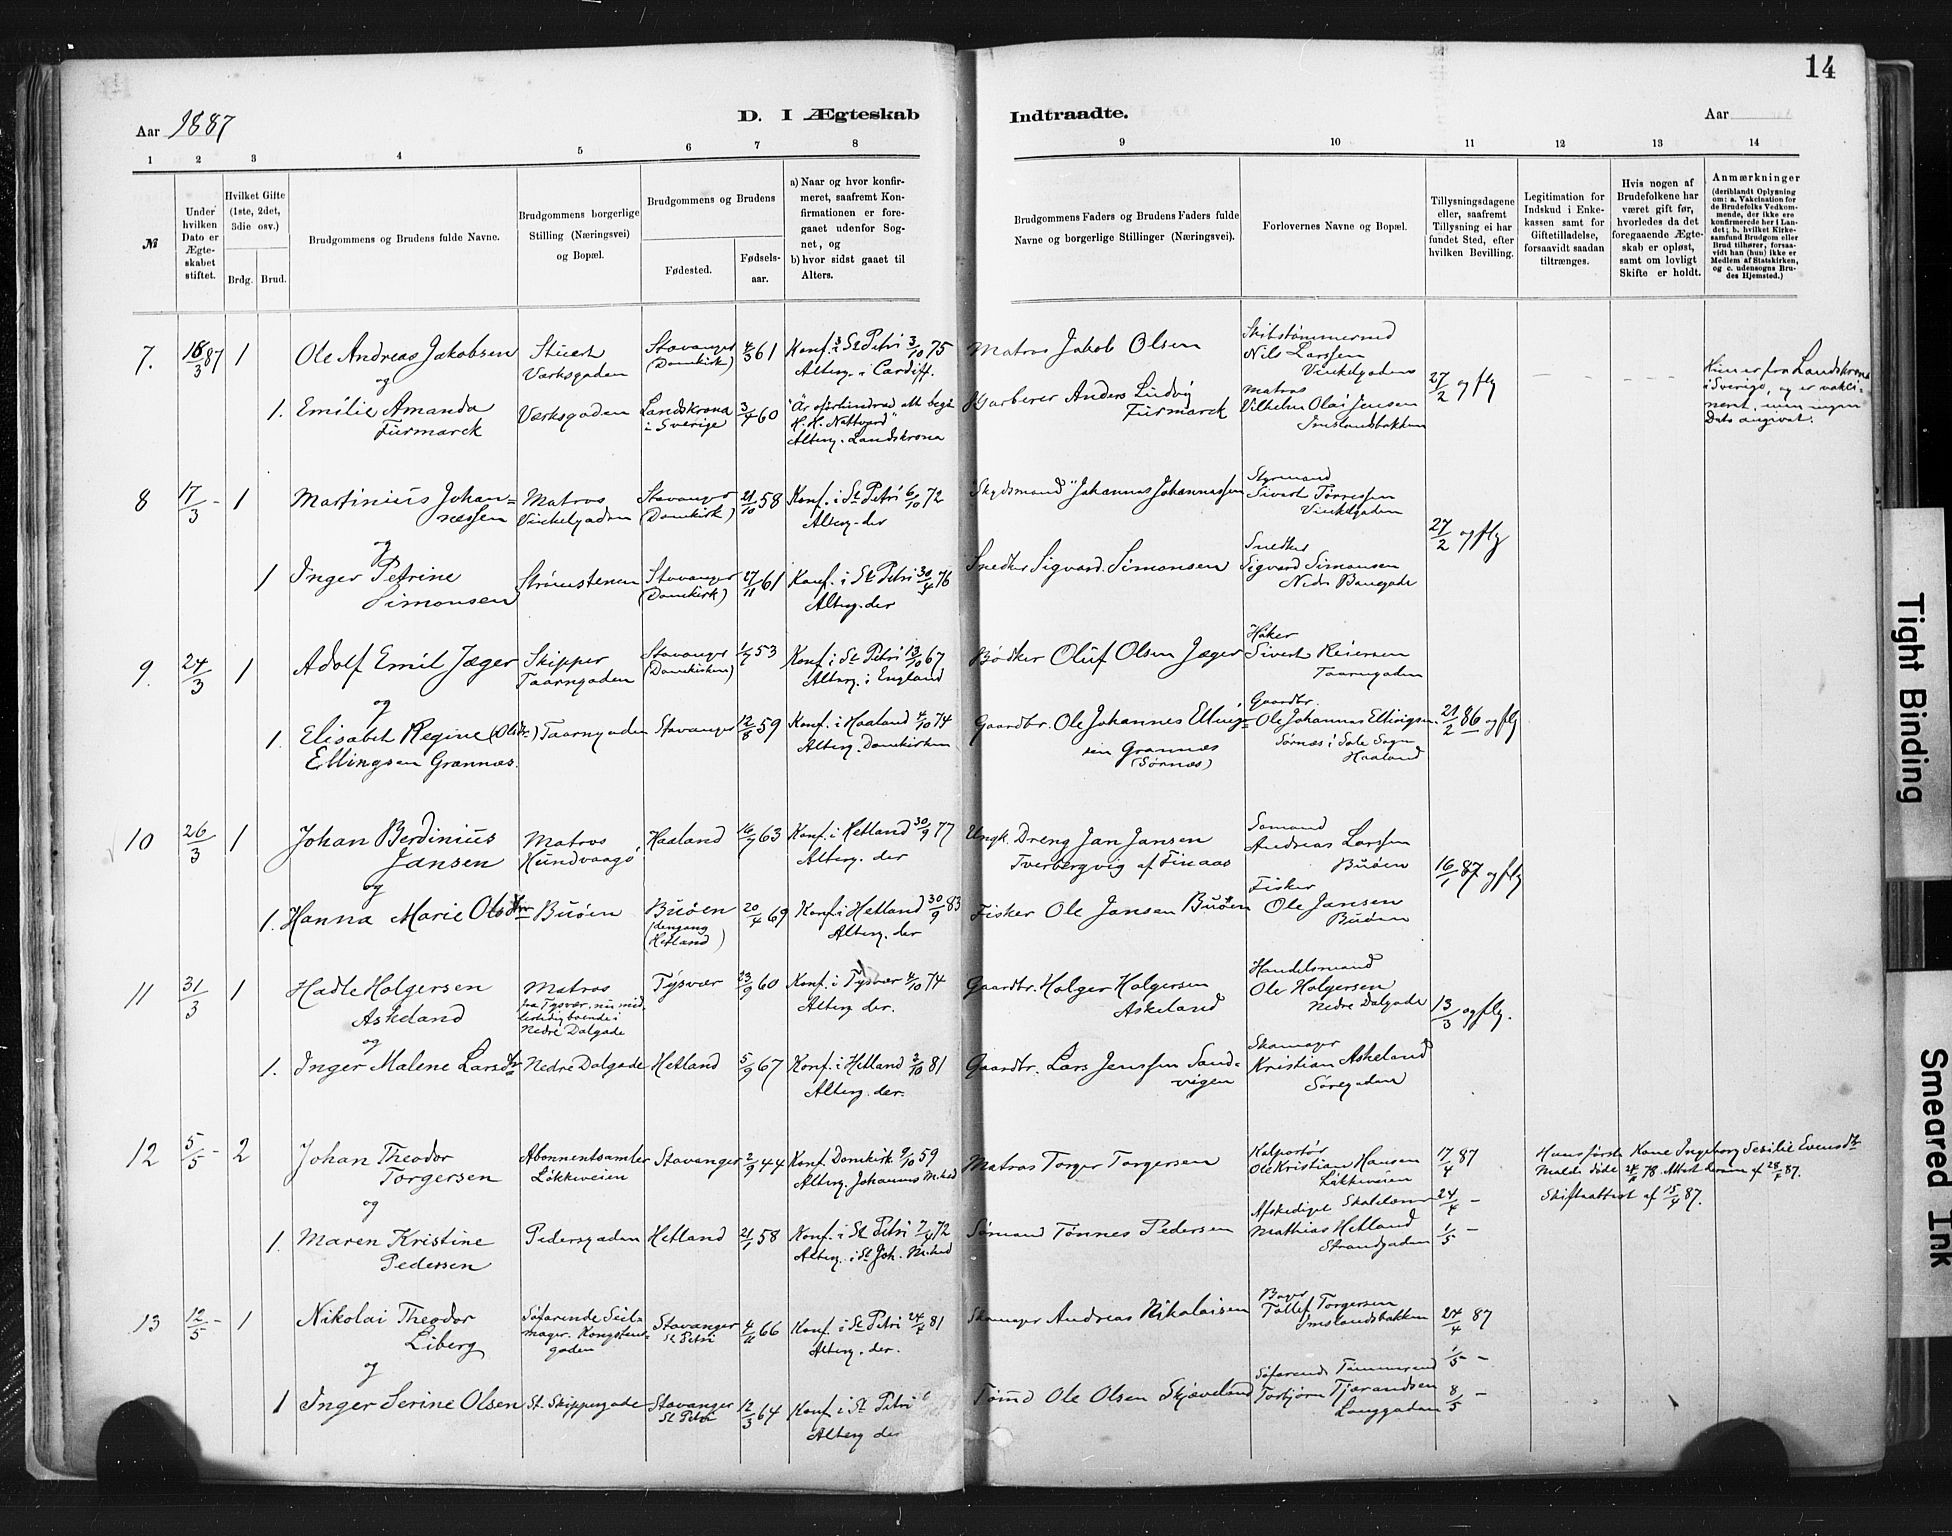 14
Aar 1887
D. I Ægteskab Indtraadte.
Aar
1 2 3 4 5 6 7 8 9 10 11 12 13 14
№
Under hvilken Dato er Ægteskabet stiftet.
Hvilket Gifte (1ste, 2det, 3die osv.)
Brdg. Brud.
Brudgommens og Brudens fulde Navne.
Brudgommens borgerlige Stilling (Næringsvei) og Bopæl.
Brudgommens og Brudens
Fødested.
Fødselsaar.
a) Naar og hvor konfirmeret, saafremt Konfirmationen er foregaaet udenfor Sognet, og
b) hvor sidst gaaet til Alters.
Brudgommens Faders og Brudens Faders fulde Navne og borgerlige Stillinger (Næringsvei).
Forlovernes Navne og Bopæl.
Tillysningsdagene eller, saafremt Tillysning ei har fundet Sted, efter hvilken Bevilling.
Legitimation for Indskud i Enkekassen samt for Giftetilladelse, forsaavidt saadan tiltrænges.
Hvis nogen af Brudefolkene har været gift før, hvorledes da det foregaaende Ægteskab er opløst, samt om lovligt Skifte er holdt.
Anmærkninger
(deriblandt Oplysning om: a. Vakcination for de Brudefolks Vedkommende, der ikke ere konfirmerede her i Landet; b. hvilket Kirkesamfund Brudgom eller Brud tilhører, forsaavidt han (hun) ikke er Medlem af Statskirken, og c. udensogns Brudes Hjemsted.)
7. 18/3 87 1 Ole Andreas Jakobsen
Stuert Værksgaden
Stavanger (Domkirk) 4/3 61
Konf. i St Petri 3/10 75
Alterg. i Cardiff.
Matros Jakob Olsen
Skibstømmermd Nils Larssen Vinkelgaden
27/2 og flg
og
1. Emilie Amanda Furmarck
Værksgaden
Landskrona i Sverige 3/4 60
"Är oförhindrad att begå H. H. Nattvard"
Alterg. Landskrona
Garberer Anders Ludvig Furmarck
Matros Vilhelm Olai Jensen Imslandsbakken
Hun er fra Landskrona i Sverige, og er vakcineret, men ingen Dato angivet.
8 17/3 - 1 Martinius Johannessen
Matros Vinkelgaden
Stavanger (Domkirk) 21/10 58
Konf. i St Petri 6/10 72
Alterg. der
"Skydsmand" Johannes Johannessen
Styrmand Sivert Tørressen Vinkelgaden
27/2 og flg
og
1 Inger Petrine Simonsen
Strømstenen
Stavanger (Domkirk) 27/11 61
Konf. i St Petri 30/4 76
Alterg. der
Snedker Sigvard Simonsen
Snedker Sigvard Simonsen Nedre Banegade
9. 24/3 1 Adolf Emil Jæger
Skipper Taarngaden
Stavanger (Domkirken) 1/7 53
Konf. i St Petri 13/10 67
Alterg. i England
Bødker Oluf Olsen Jæger
Høker Sivert Reiersen Taarngaden
og
1. Elisabet Regine (Olsdtr) Ellingsen Grannæs.
Taarngaden
Stavanger 12/8 59
Konf. i Haaland 4/10 74
Alterg. Domkirken
Gaardbr. Ole Johannes Ellingsen Grannæs (Sørnæs)
Gaardbr. Ole Johannes Ellingsen Sørnæs i Sole Sogn Haaland
21/2 86 og flg
10 26/3 1 Johan Berdinius Jansen
Matros Hundvaagø
Haaland 16/7 63
Konf. i Hetland 30/9 77
Alterg. der
Ungk. Dreng Jan Jansen Tverbergvig af Finaas
Sømand Andreas Larssen Buøen
16/1 87 og flg
og
1. Hanna Marie Olsdtr
Buøen
Buøen (dengang Hetland) 20/4 69
Konf. i Hetland 30/9 83
Alterg. der
Fisker Ole Jansen Buøen
Fisker Ole Jansen Buøen
11 31/3 1 Hadle Holgersen Askeland
Matros fra Tysvær, nu midlertidig boende i Nedre Dalgade
Tysvær 23/9 60
Konf. i Tysvær 4/10 74
Alterg. der.
Gaardbr. Holger Holgersen Askeland
Handelsmand Ole Holgersen Nedre Dalgade
13/3 og flg.
og
1. Inger Malene Larsdtr
Nedre Dalgade
Hetland 5/9 67
Konf. i Hetland 2/10 81
Alterg. der.
Gaardbr. Lars Jenssen Sandvigen
Skomager Kristian Askeland Søregaden
12 5/5 - 2 Johan Theodor Torgersen
Abonnentsamler Løkkeveien
Stavanger 2/9 44
Konf. Domkirk. 9/10 59
Alterg. Johannes M.hed
Matros Torger Torgersen
Kolportør Ole Kristian Hansen Løkkeveien
17/4 87
24/4 -
1/5 -
Hans første Kone Ingeborg Sesilie Evensdtr Melde døde 78. Attest derom af 87.
Skifteattest af 15/4 87.
og
1. Maren Kristine Pedersen
Pedersgaden
Hetland 21/1 58
Konf. i St Petri 7/4 72
Alterg. i St Joh. M.hed
Sømand Tønnes Pedersen
Afskediget Mathias Hetland Strandgaden
13 12/5 - 1 Nikolai Theodor Liberg
Søfarende Seilmager. Kongstensgaden
Stavanger St Petri 4/11 66
Konf. i St Petri 24/4 81
Alterg. der.
Skomager Andreas Nikolaisen
Bager Tollef Torgersen Imslandsbakken
24/4 87
1/5 -
8/5 -
og
1 Inger Serine Olsen
St. Skippergade
Stavanger St Petri 12/3 64
Konf. i St Petri
Alterg der
Tømd Ole Olsen Skjæveland
Søfarende Tømmermd Torbjørn Tjerandsen Langgaden
Tight Binding
Smeared Ink